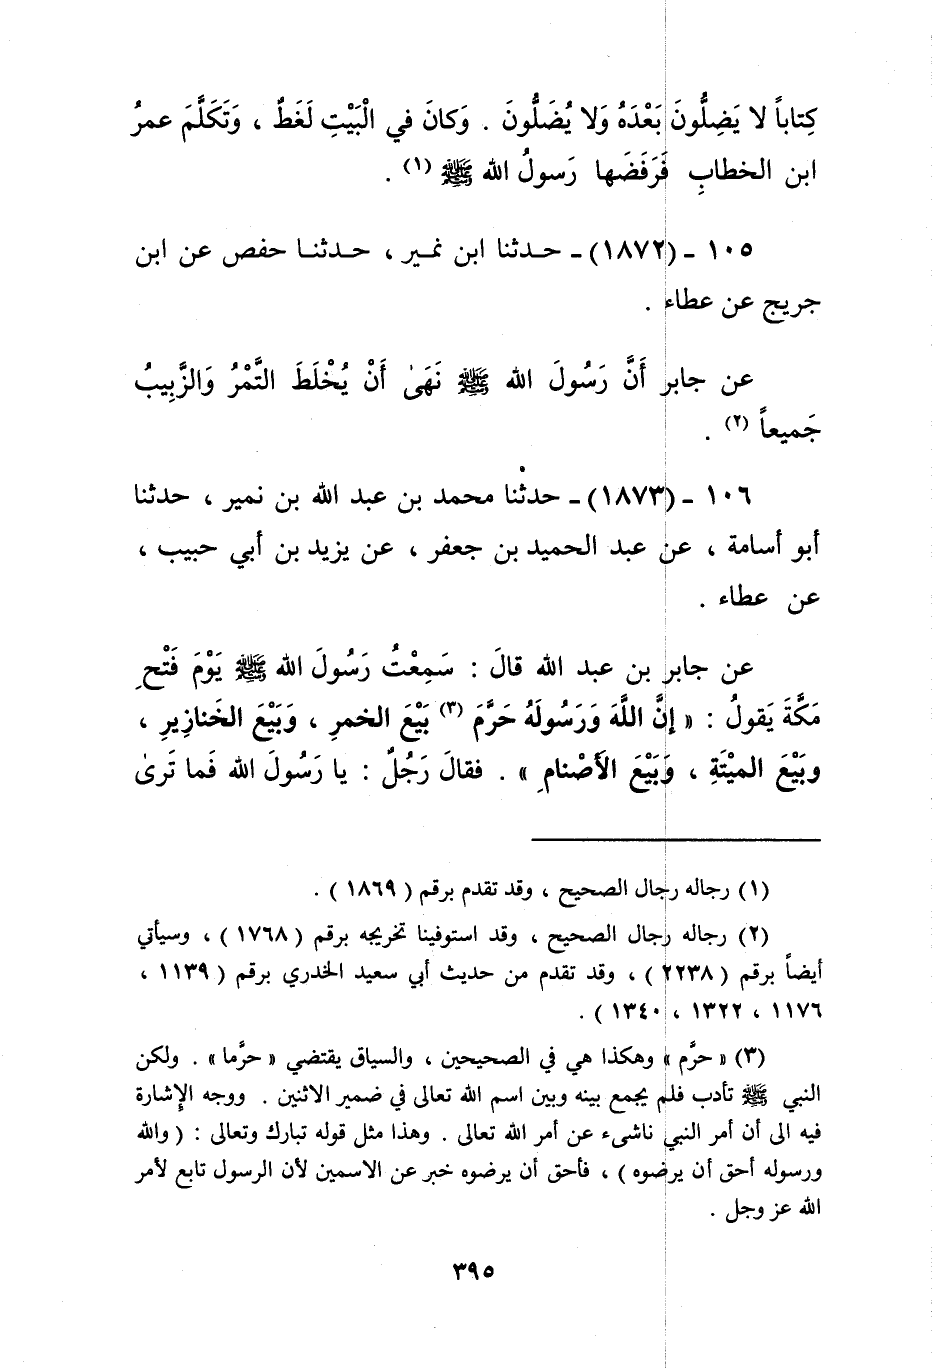 كِتاباً لا يَضِلُّونَ بَعْدَهُ وَلا يُضَلُّونَ . وَكانَ في الْبَيْتِ لَغَطٌ ، وَتَكَلَّمَ عمرُ
ابن الخطابِ فَرَفَضَها رَسولُ الله ﷺ (١) .
١٠٥ - (١٨٧٢) - حـدثنا ابن نمـير ، حـدثنـا حفص عن ابن
جريج عن عطاء .
عن جابر أَنَّ رَسُولَ الله ﷺ نَهَىٰ أَنْ يُخْلَطَ التَّمْرُ وَالزَّبِيبُ
جَميعاً (٢) .
١٠٦ - (١٨٧٣) - حدثنا محمد بن عبد الله بن نمير ، حدثنا
أبو أسامة ، عن عبد الحميد بن جعفر ، عن يزيد بن أبي حبيب ،
عن عطاء .
عن جابر بن عبد الله قالَ : سَمِعْتُ رَسُولَ الله ﷺ يَوْمَ فَتْحِ
مَكَّةَ يَقولُ : « إِنَّ اللَّهَ وَرَسُولَهُ حَرَّمَ (٣) بَيْعَ الخمرِ ، وَبَيْعَ الخَنازِيرِ ،
وبَيْعَ الميْتَةِ ، وَبَيْعَ الأَصْنامِ » . فقالَ رَجُلٌ : يا رَسُولَ الله فَما تَرىٰ
(١) رجاله رجال الصحيح ، وقد تقدم برقم ( ١٨٦٩ ) .
(٢) رجاله رجال الصحيح ، وقد استوفينا تخريجه برقم ( ١٧٦٨ ) ، وسيأتي
أيضاً برقم ( ٢٢٣٨ ) ، وقد تقدم من حديث أبي سعيد الخدري برقم ( ١١٣٩ ،
١١٧٦ ، ١٣٢٢ ، ١٣٤٠ ) .
(٣) « حرَّم » وهكذا هي في الصحيحين ، والسياق يقتضي « حرَّما » . ولكن
النبي ﷺ تأدب فلم يجمع بينه وبين اسم الله تعالى في ضمير الاثنين . ووجه الإشارة
فيه الى أن أمر النبي ناشىء عن أمر الله تعالى . وهذا مثل قوله تبارك وتعالى : ( والله
ورسوله أحق أن يرضوه ) ، فأحق أن يرضوه خبر عن الاسمين لأن الرسول تابع لأمر
الله عز وجل .
٣٩٥